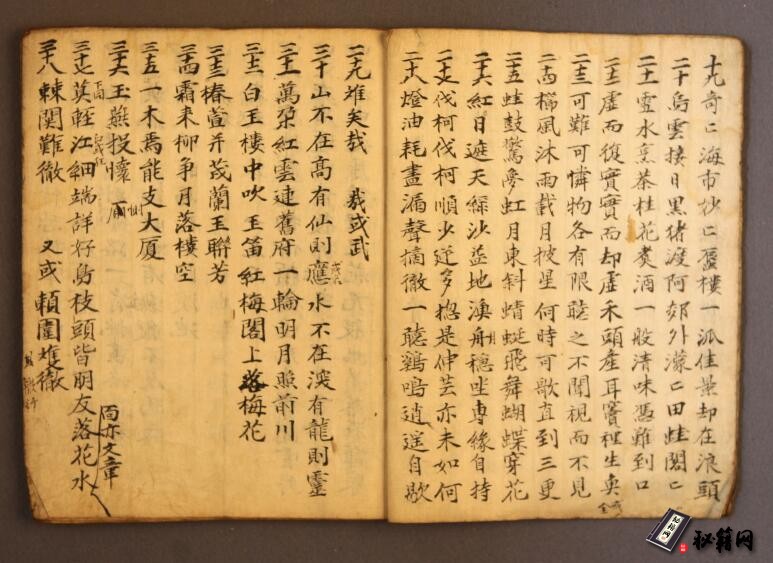 十九奇〻海市抄〻蜃樓一派佳景却在浪頭
二十烏雲接日黑猪渡河郊外濛〻田蛙閣〻
二十一雪水烹茶桂花煮酒一般清味憑難到口
二十二虛而復實實而却虛禾頭產耳竇裡生奐
二十三可難可憐物各有限聽之不聞視而不見
二十四櫛風沐雨戴月披星何時可歇直到三更
二十五蛙鼓驚夢虹月東斜蜻蜓飛舞蝴蝶穿花
二十六紅日遮天綠沙蓋地漁舟穩坐專緣自持
二十七伐柯伐柯順少逆多揔是仲芸亦未如何
二十八燈油耗盡漏聲摘徹一聽鷄鳴逍遥自歇
二十九难矣哉 哉或武
三十山不在高有仙則應水不在深有龍則靈
三十一萬朶紅雲連舊府一輪明月照前川
三十二白玉樓中吹玉笛紅梅閣上落梅花
三十三椿萱并茂蘭玉聯芳
三十四霜来柳争月落樓空
三十五一木焉能支大厦
三十六玉燕投懷
三十七莫輕江細端詳好鳥枝頭皆朋友落花水
面亦文章
三十八棘関難徹 又或頼圍难徹
秘籍网